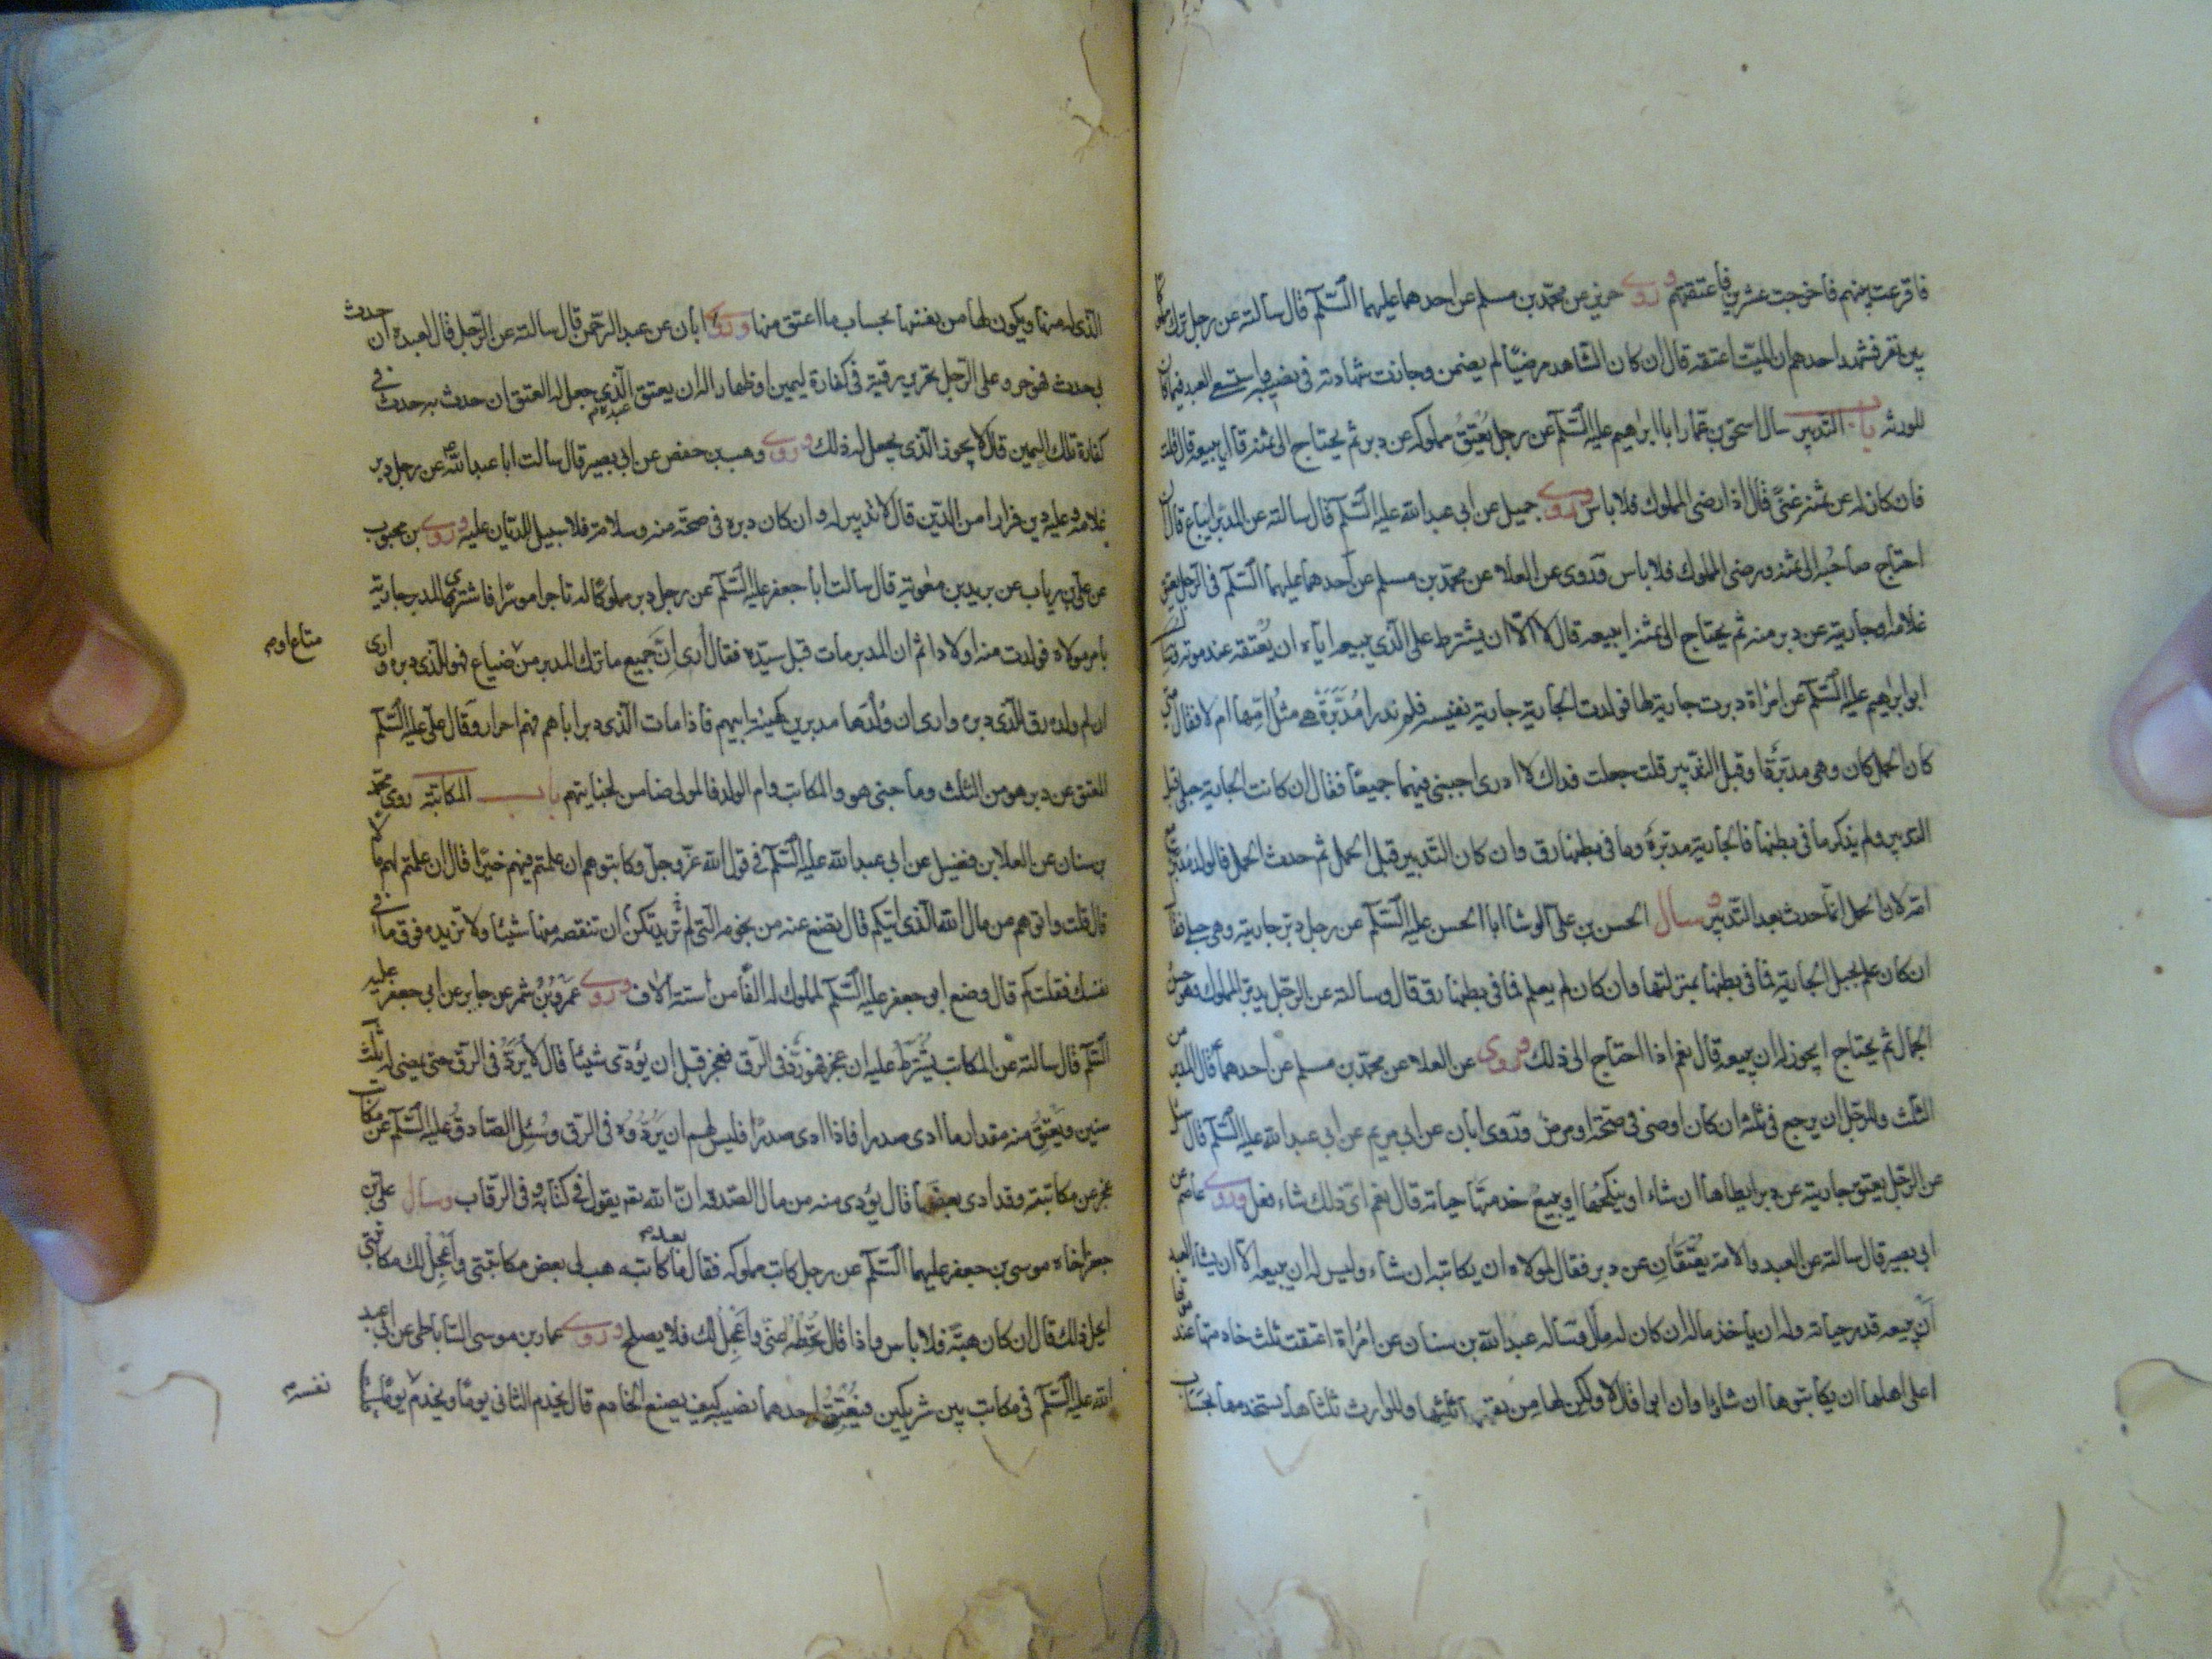 فاقرعت بينهم فاخرجت عشرين فاعتقتهم وروى حريز عن محمد بن مسلم عن احدهما عليهما السّلم قال سالته عن رجل ترك مملوكا
بين نفر فشهد احدهم ان الميّت اعتقه قال ان كان الشاهد مرضيّا لم يضمن وجازت شهادته في نصيبه واستسعي العبد فيما كان
للورثة باب التدبير سال اسحق بن عمّار ابا ابرهيم عليه السّلم عن رجل يُعتِقُ مملوكه عن دبر ثم يحتاج الى ثمنه قال يبيعه قال قلت
فان كان له عن ثمنه غنىً قال اذا رضى المملوك فلا باس وروى جميل عن ابى عبد الله عليه السّلم قال سالته عن المدبّر ايباع قال ان
احتاج صاحبُه الى ثمنه ورضى المملوك فلا باس وروى عن العلاء عن محمّد بن مسلم عن احدهما عليهما السّلم في الرّجل يعتق
غلامه او جاريته عن دبر منه ثم يحتاج الى ثمنه ايبيعه قال لا الّا ان يشترط على الّذي يبيعه ايّاه ان يُعتقه عند موته وسئل
ابو ابرهيم عليه السّلم عن امراة دبرت جارية لها فولدت الجارية جارية نفيسه فلم تدر امُدبَّرَةٌ هي مثل امّها ام لا فقال متى
كان الحمل كان وهي مدبّرة او قبل التّدبير قلت جعلت فداك لا ادرى اجبنى فيهما جميعًا فقال ان كانت الجارية حبلى قبل
التدبير ولم يذكر ما في بطنها فالجارية مدبّرةٌ وما في بطنها رق وان كان التّدبير قبل الحمل ثم حدث الحمل فالولد مدبّر مع
امّه لان الحمل انّما حدث بعد التّدبير وسال الحسن بن علىّ الوشّا ابا الحسن عليه السّلم عن رجل دبّر جاريته وهي حبلى فقال
ان كان علم بحبل الجارية فما في بطنها بمنزلتها وان كان لم يعلم فما في بطنها رق قال وسالته عن الرّجل يدبّر المملوك وهو حسن
الحال ثم يحتاج ايجوز له ان يبيعه قال نعم اذا احتاج الى ذلك وروى عن العلاء عن محمّد بن مسلم عن احدهما قال المدبّر من
الثّلث وللرّجل ان يرجع في ثلثه ان كان اوصى في صحّة او مرض وروى ابان عن ابى مريم عن ابى عبد الله عليه السّلم قال سئل
عن الرّجل يعتق جاريته عن دبر ايطاها ان شاء او ينكحُها او يبيعُ خدمتها حياته قال نعم اىّ ذلك شاء فعل وروى عاصم عن
ابى بصير قال سالته عن العبد والامة يُعتَقانِ عن دبر فقال لمولاه ان يكاتبه ان شاء وليس له ان يبيعه الّا ان يشاء العبد
ان يبيعه قدر حياته وله ان ياخذ ماله ان كان له مال وساله عبد الله بن سنان عن امراة اعتقت ثلث خادمها عند موتها
اعلى اهلها ان يكاتبوها ان شاؤا وان ابوا قال لا ولكن لها من نفسها ثلثها وللوارث ثلثاها يستخدمها بحساب
الّذى له منها ويكون لها من نفسها بحساب ما اعتق منها وروى ابان عن عبد الرّحمن قال سالته عن الرّجل قال لعبده ان حدث
بى حدث فهو حر وعلى الرّجل تحرير رقبة في كفّارة ليمين او ظهار اله ان يعتق عبده الّذي جعل له العتق ان حدث به حدث في
كفارة تلك اليمين قال لا يجوز الّذى يجعل له ذلك وروى وهيب بن حفص عن ابى بصير قال سالت ابا عبد الله ع عن رجل دبر
غلامه وعليه دين فرارا من الدّين قال لا تدبير له وان كان دبره في صحّة منه وسلامة فلا سبيل للدّيّان عليه وروى بن محبوب
عن علىّ بن رياب عن بريد بن معوية قال سالت ابا جعفر عليه السّلم عن رجل دبر مملوكًا له تاجرا موسرًا فاشترى المدبر جارية
بامر مولاه فولدت منه اولادا ثم ان المدبر مات قبل سيّده فقال ارى انّ جميع ما ترك المدبر من ضياع فهو للّذى دبره وارى
متاع او م
ان ام ولده رق للّذى دبره وارى ان وُلدَها مدبرين كهيئة ابيهم فاذا مات الّذى دبر اباهم فهم احرار وقال علىّ عليه السّلم
المعتق عن دبر هو من الثّلث وما جنى هو والمكاتب وام الولد فالمولى ضامن لجنايتهم باب المكاتبة روى محمّد
بن سنان عن العلا بن فضيل عن ابى عبد الله عليه السّلم في قول الله عزّ وجلّ وكاتبوهم ان علمتم فيهم خيرًا قال ان علمتم لهم مالا
قال قلت واتوهم من مال الله الّذى اتيكم قال تضع عنه من نجومه الّتى لم تُرِيد تكن ان تنقصه منها شيئا ولا تزيده فوق ما في
نفسك فقلت كم قال وضع ابو جعفر عليه السّلم لمملوك له الفًا من ستة الاف وروى عَمرو بن شمر عن جابر عن ابى جعفر عليه
السّلم قال سالته عن المكاتب يُشترَط عليه ان عجز فهو رَدٌّ في الرّق فعجز قبل ان يُؤدّى شيئًا قال لا يَردُّ في الرّق حتى يمضى له ثلث
سنين ويَعتِقُ منه مقدار ما ادى صدرا فاذا ادى صدرًا فليس لهم ان يَرُدُّوه في الرق وسُئِل الصّادق عليه السّلم عن مكاتب
عجز عن مكاتبته وقد ادى بعضها قال يؤدى منه من مال الصّدقة انّ الله تع يقول في كتابه وفي الرّقاب وسال علىّ بن
جعفر اخاه موسى بن جعفر عليهما السّلم عن رجل كاتب مملوكه فقال بعد م ما كاتبه هب لى بعض مكاتبتى واُعجّل لك مكاتبتى
ايحل ذلك قال ان كان هبةً فلا باس واذا قال تحطّ عنّى واُعجّل لك فلا يصلح وروى عمار بن موسى السّاباطى عن ابى عبد
الله عليه السّلم في مكاتب بين شريكين فيُعتِقُ احدهما نصيبه كيف يصنع الخادم قال يخدم الثانى يومًا ويخدم يومًا
نفسه م